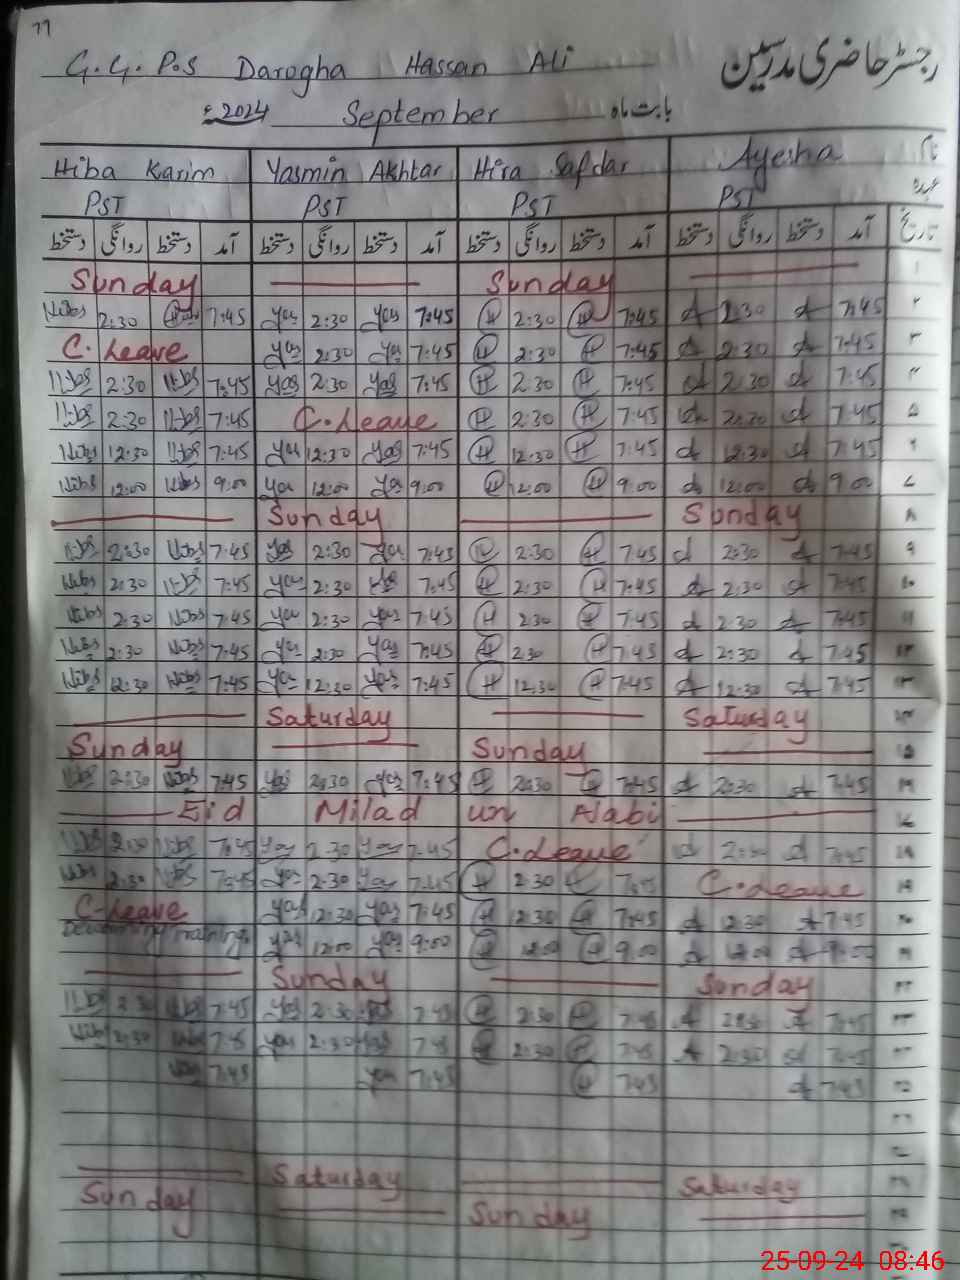 77
G.G.P.S Darogha Hassan Ali رجسٹر حاضری مدرسین
2024ء September بابت ماہ
Hiba Karim Yasmin Akhtar Hira Safdar Ayesha نام
PST PST PST PST عہدہ
دستخط روانگی دستخط آمد دستخط روانگی دستخط آمد دستخط روانگی دستخط آمد دستخط روانگی دستخط آمد تاریخ
Sunday Sunday ۱
2:30 7:45 Yas 2:30 Yas 7:45 H 2:30 H 7:45 A 2:30 A 7:45 ۲
C. Leave Yas 2:30 Yas 7:45 H 2:30 H 7:45 A 2:30 A 7:45 ۳
Hibs 2:30 Hibs 7:45 Yas 2:30 Yas 7:45 H 2:30 H 7:45 A 2:30 A 7:45 ۴
Hibs 2:30 Hibs 7:45 C.Leave H 2:30 H 7:45 A 2:30 A 7:45 ۵
Hibs 12:30 Hibs 7:45 Yas 12:30 Yas 7:45 H 12:30 H 7:45 A 12:30 A 7:45 ۶
Hibs 12:00 Hibs 9:00 Yas 12:00 Yas 9:00 H 12:00 H 9:00 A 12:00 A 9:00 ۷
Sunday Sunday ۸
Hibs 2:30 Hibs 7:45 Yas 2:30 Yas 7:45 H 2:30 H 7:45 A 2:30 A 7:45 ۹
Hibs 2:30 Hibs 7:45 Yas 2:30 Yas 7:45 H 2:30 H 7:45 A 2:30 A 7:45 ۱۰
Hibs 2:30 Hibs 7:45 Yas 2:30 Yas 7:45 H 2:30 H 7:45 A 2:30 A 7:45 ۱۱
Hibs 2:30 Hibs 7:45 Yas 2:30 Yas 7:45 H 2:30 H 7:45 A 2:30 A 7:45 ۱۲
Hibs 12:30 Hibs 7:45 Yas 12:30 Yas 7:45 H 12:30 H 7:45 A 12:30 A 7:45 ۱۳
Saturday Saturday ۱۴
Sunday Sunday ۱۵
Hibs 2:30 Hibs 7:45 Yas 2:30 Yas 7:45 H 2:30 H 7:45 A 2:30 A 7:45 ۱۶
Eid Milad un Nabi ۱۷
Hibs 2:30 Hibs 7:45 Yas 2:30 Yas 7:45 C.Leave A 2:30 A 7:45 ۱۸
Hibs 2:30 Hibs 7:45 Yas 2:30 Yas 7:45 H 2:30 H 7:45 C.Leave ۱۹
C-Leave Yas 12:30 Yas 7:45 H 12:30 H 7:45 A 12:30 A 7:45 ۲۰
Training Yas 12:00 Yas 9:00 H 12:00 H 9:00 A 12:00 A 9:00 ۲۱
Sunday Sunday ۲۲
Hibs 2:30 Hibs 7:45 Yas 2:30 Yas 7:45 H 2:30 H 7:45 A 2:30 A 7:45 ۲۳
Hibs 2:30 Hibs 7:45 Yas 2:30 Yas 7:45 H 2:30 H 7:45 A 2:30 A 7:45 ۲۴
7:45 Yas 7:45 H 7:45 A 7:45 ۲۵
۲۶
۲۷
Saturday Saturday ۲۸
Sunday Sunday ۲۹
25-09-24 08:46